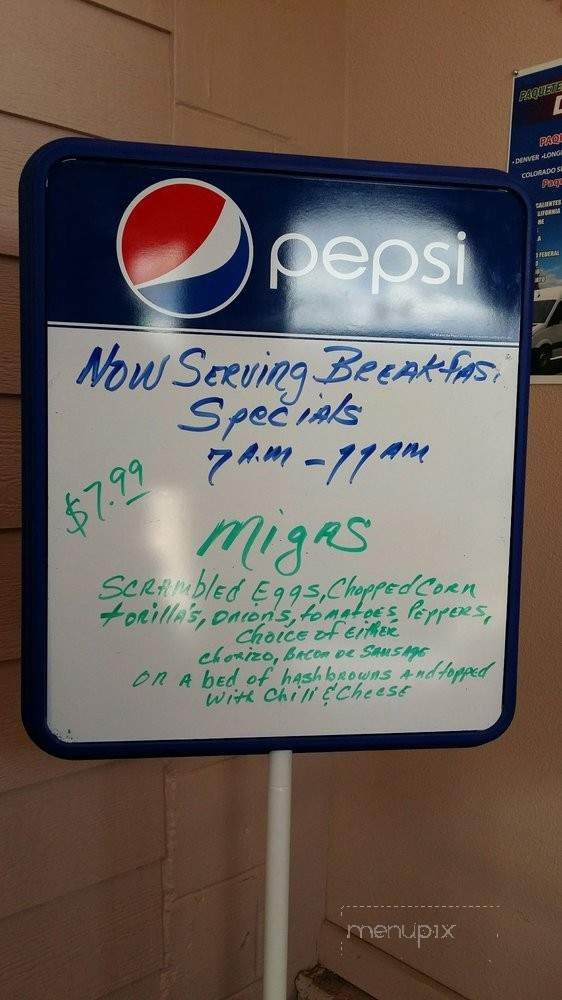 pepsi
NOW SERVING BREAKFAST
SPECIALS
7 A.M - 11 AM
$7.99
MIGAS
SCRAMBLED EGGS, CHOPPED CORN
TORILLA'S, ONIONS, TOMATOES, PEPPERS,
CHOICE OF EITHER
CHORIZO, BACON OR SAUSAGE
OR A BED OF HASHBROWNS AND TOPPED
WITH CHILI & CHEESE
PAQUETE
PAQ
• DENVER • LONG
COLORADO S
Paq
CALIENTES
LIFORNIA
HE
A
FEDERAL
menupix